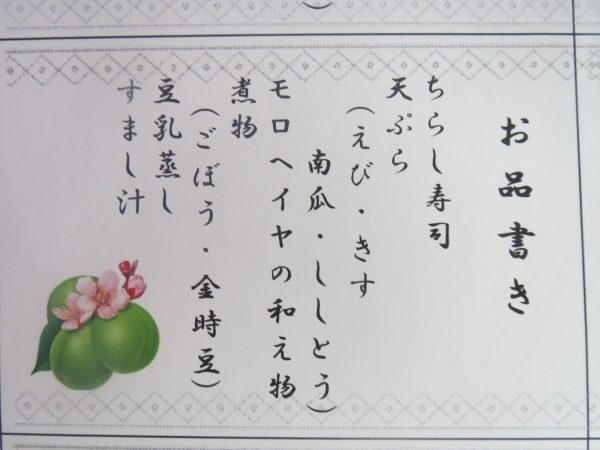 お品書き
ちらし寿司
天ぷら
(えび・きす
南瓜・ししとう)
モロヘイヤの和え物
煮物
(ごぼう・金時豆)
豆乳蒸し
すまし汁